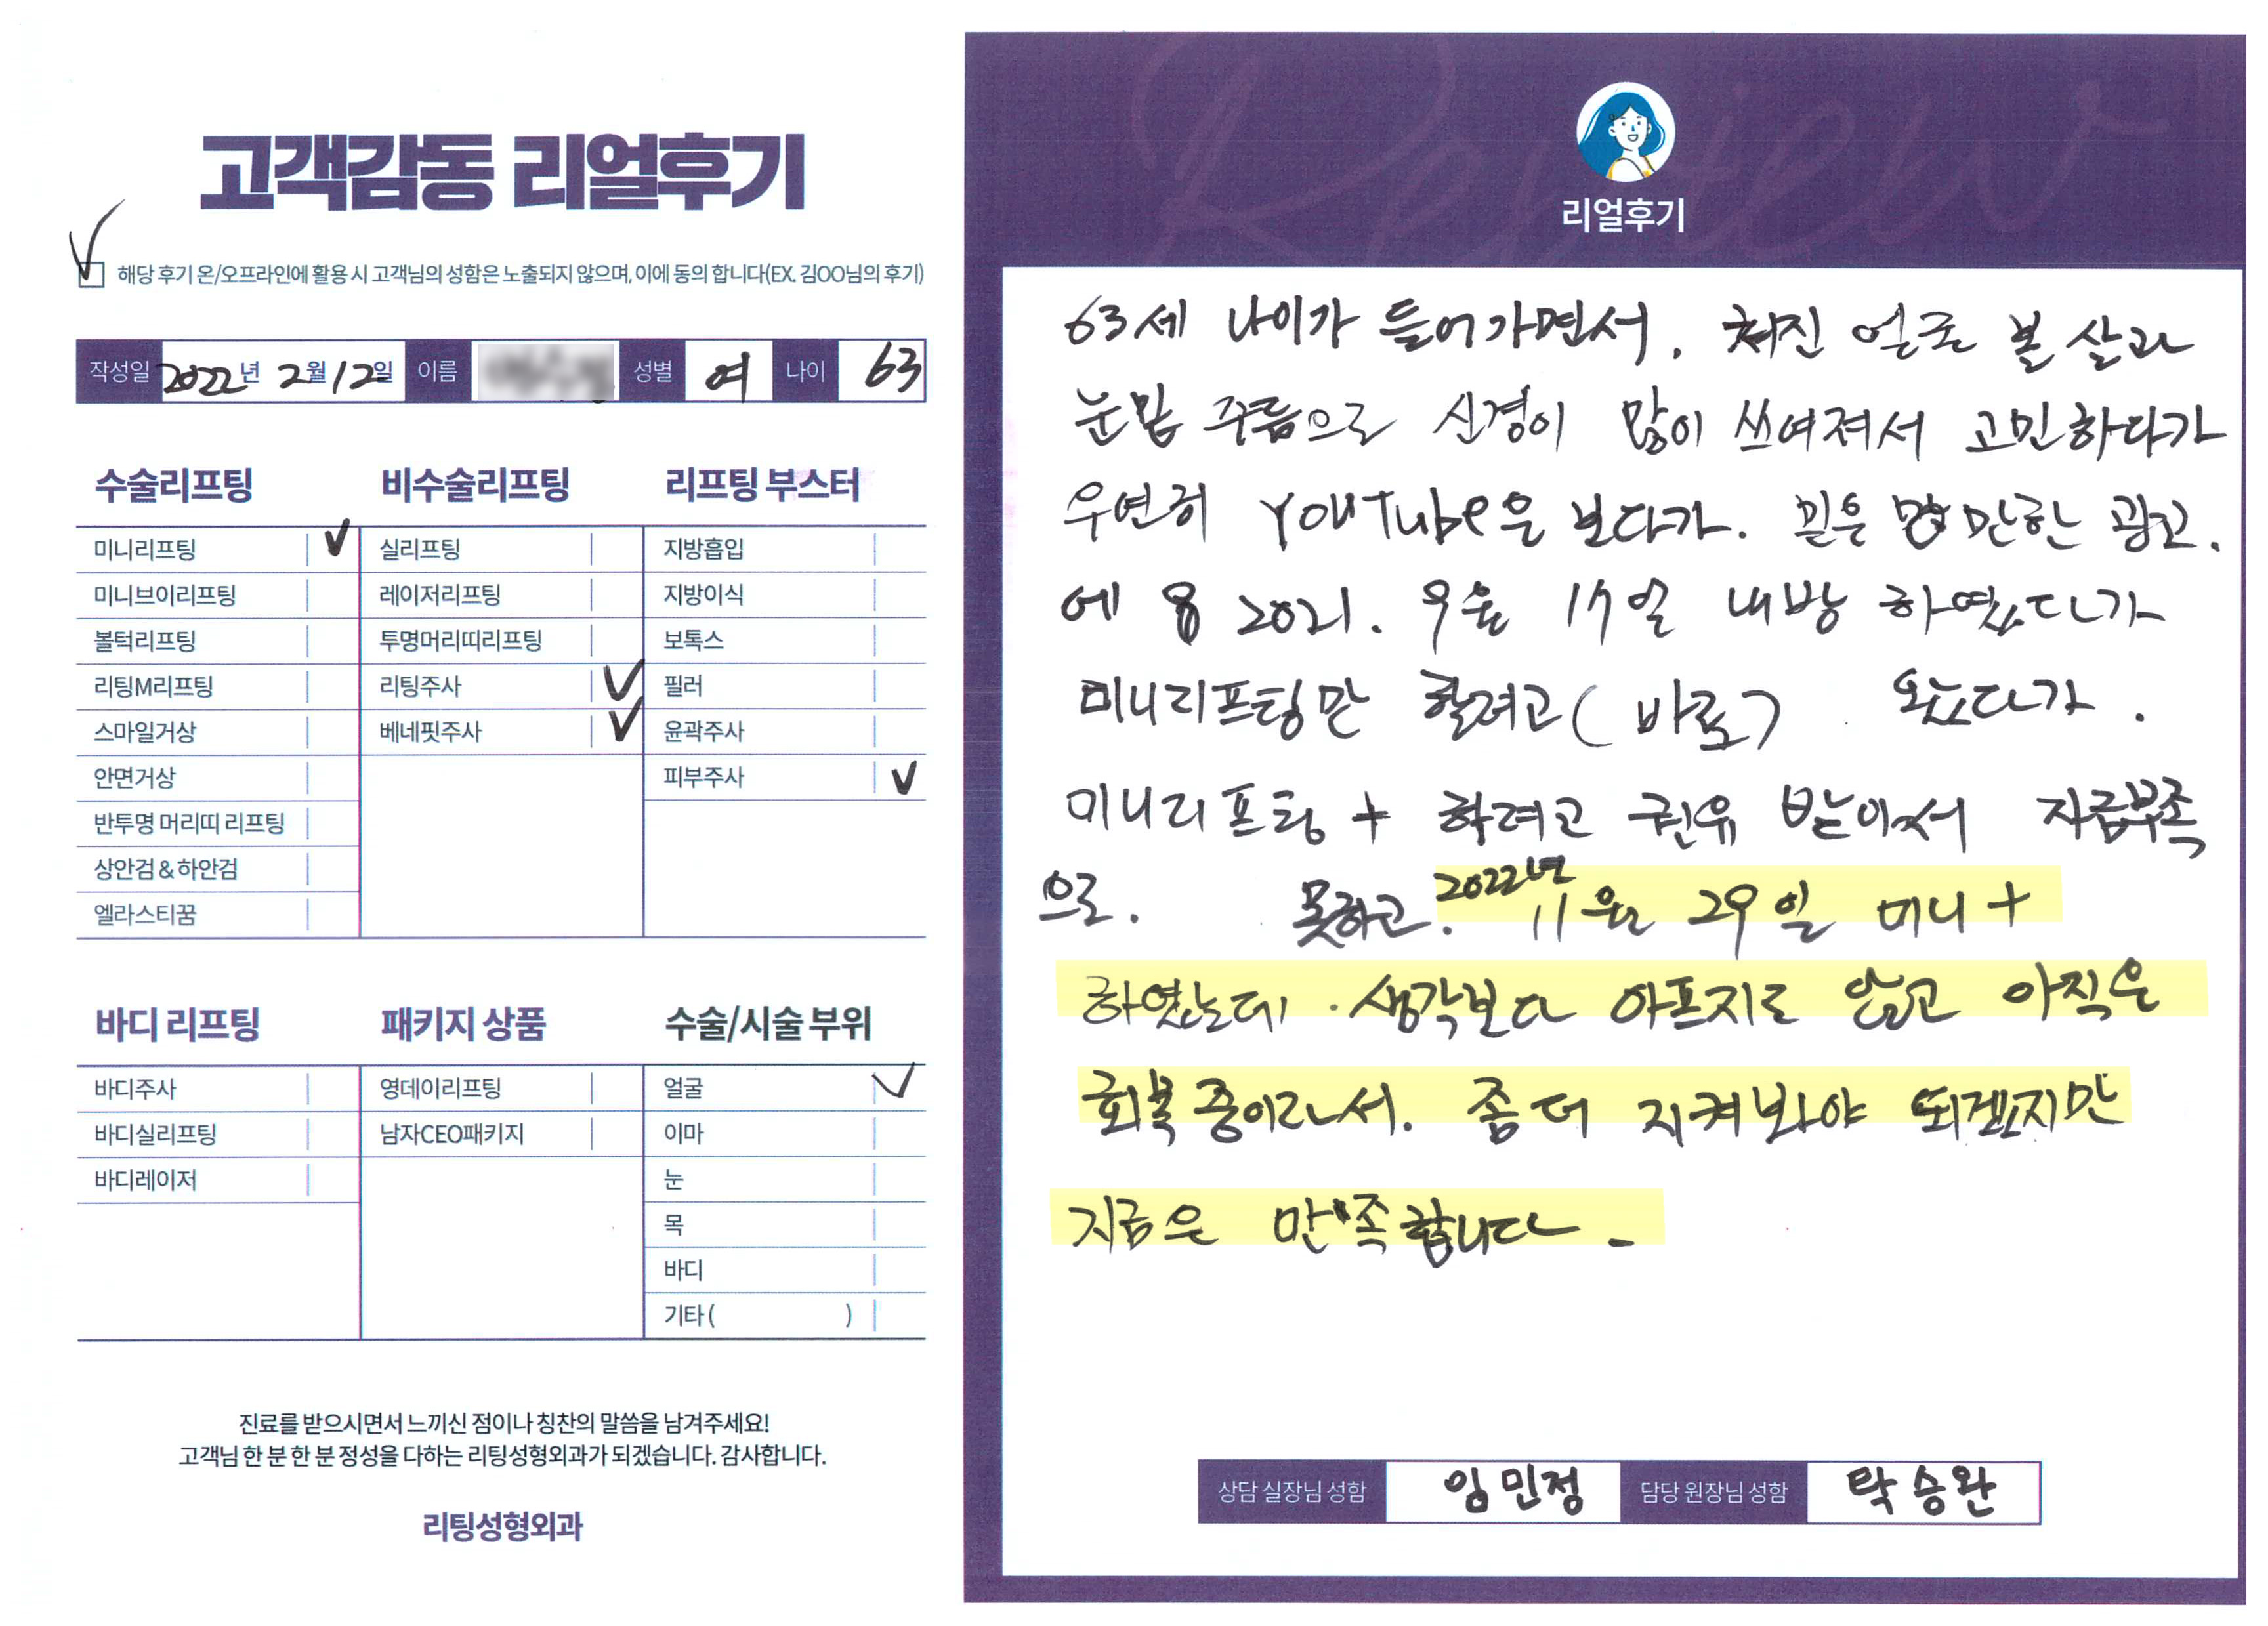 고객감동 리얼후기
해당 후기 온/오프라인에 활용 시 고객님의 성함은 노출되지 않으며, 이에 동의 합니다(EX. 김OO님의 후기)
작성일 2022년 2월 12일 이름 성별 여 나이 63
수술리프팅
미니리프팅
미니브이리프팅
볼턱리프팅
리팅M리프팅
스마일거상
안면거상
반투명 머리띠 리프팅
상안검 & 하안검
엘라스티꿈
비수술리프팅
실리프팅
레이저리프팅
투명머리띠리프팅
리팅주사
베네핏주사
리프팅 부스터
지방흡입
지방이식
보톡스
필러
윤곽주사
피부주사
바디 리프팅
바디주사
바디실리프팅
바디레이저
패키지 상품
영데이리프팅
남자CEO패키지
수술/시술 부위
얼굴
이마
눈
목
바디
기타 ( )
진료를 받으시면서 느끼신 점이나 칭찬의 말씀을 남겨주세요!
고객님 한 분 한 분 정성을 다하는 리팅성형외과가 되겠습니다. 감사합니다.
리팅성형외과
Review
리얼후기
63세 나이가 들어가면서. 쳐진 얼굴 볼 살과
눈밑 주름으로 신경이 많이 쓰여져서 고민하다가
우연히 YouTube을 보다가. 믿을 만한 광고.
에 2021. 9월 17일 내방 하였다가
미니리프팅만 할려고 (바로) 왔다가.
미니리프팅 + 하려고 권유 받아서 자금부족
으로. 못하고. 2022년 11월 29일 미니 +
하였는데. 생각보다 아프지도 않고 아직은
회복 중이라서. 좀 더 지켜봐야 되겠지만
지금은 만족합니다.
상담 실장님 성함 임민정 담당 원장님 성함 탁승완